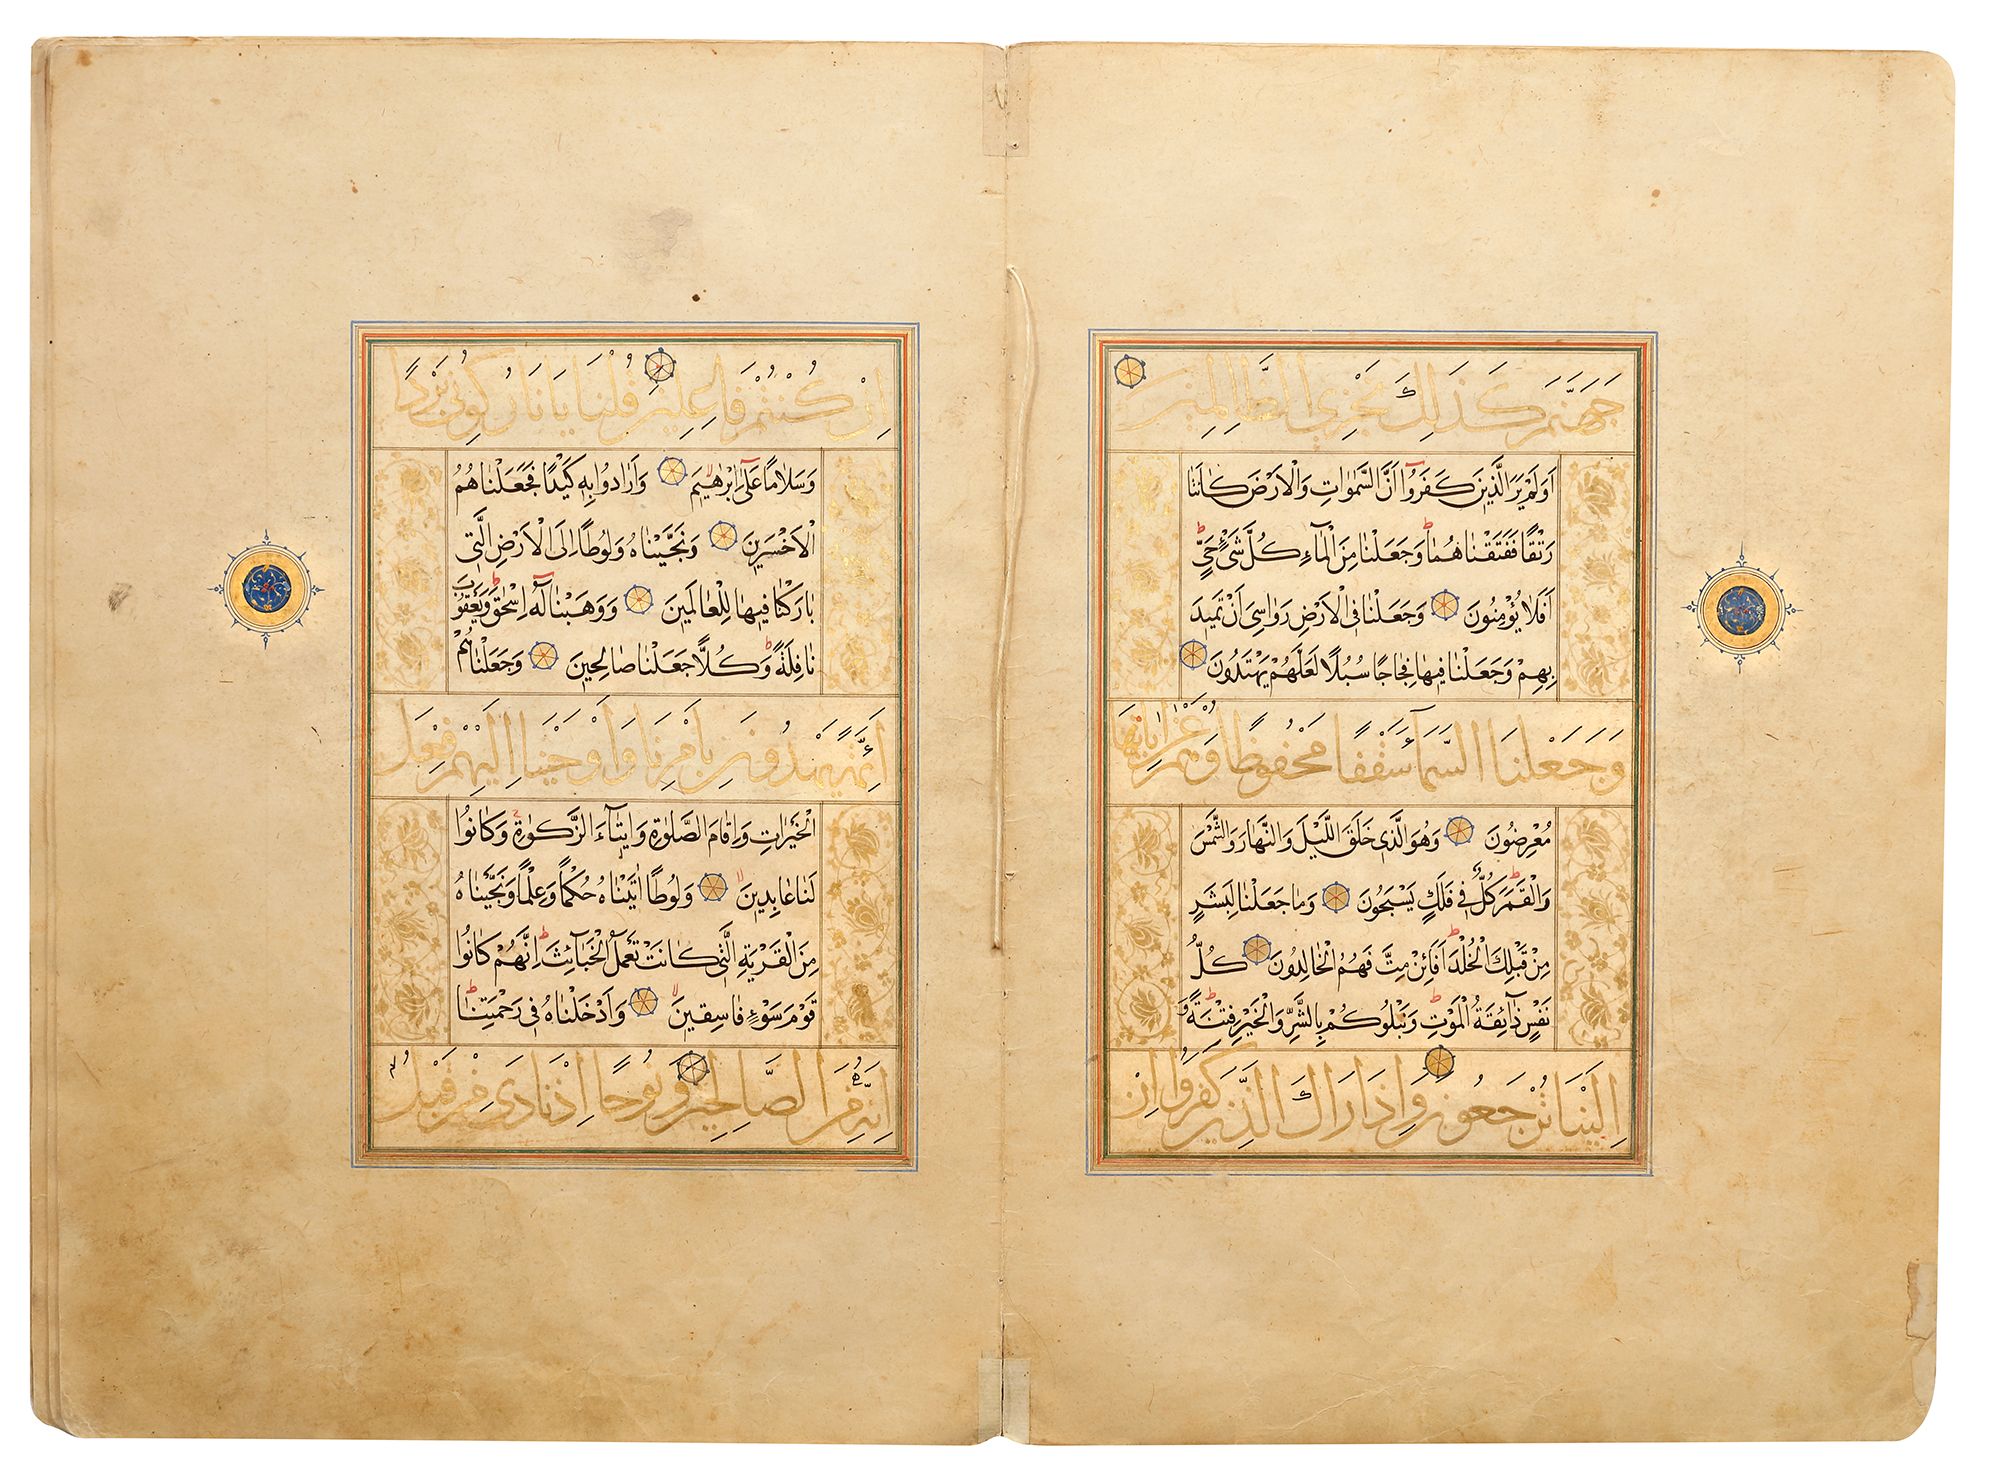 جَهَنَّمَ كَذَلِكَ نَجْزِي الظَّالِمِينَ
اَوَلَمْ يَرَ الَّذِينَ كَفَرُوا اَنَّ السَّمٰوَاتِ وَالْاَرْضَ كَانَتَا
رَتْقًا فَفَتَقْنَاهُمَا وَجَعَلْنَا مِنَ الْمَآءِ كُلَّ شَيْءٍ حَيٍّ
اَفَلَا يُؤْمِنُونَ وَجَعَلْنَا فِي الْاَرْضِ رَوَاسِيَ اَنْ تَمِيدَ
بِهِمْ وَجَعَلْنَا فِيهَا فِجَاجًا سُبُلًا لَعَلَّهُمْ يَهْتَدُونَ
وَجَعَلْنَا السَّمَآءَ سَقْفًا مَحْفُوظًا وَهُمْ عَنْ اٰيَاتِهَا
مُعْرِضُونَ وَهُوَ الَّذِي خَلَقَ اللَّيْلَ وَالنَّهَارَ وَالشَّمْسَ
وَالْقَمَرَ كُلٌّ فِي فَلَكٍ يَسْبَحُونَ وَمَا جَعَلْنَا لِبَشَرٍ
مِنْ قَبْلِكَ الْخُلْدَ اَفَائِنْ مِتَّ فَهُمُ الْخَالِدُونَ كُلُّ
نَفْسٍ ذَآئِقَةُ الْمَوْتِ وَنَبْلُوكُمْ بِالشَّرِّ وَالْخَيْرِ فِتْنَةً وَ
اِلَيْنَا تُرْجَعُونَ وَاِذَا رَاٰكَ الَّذِينَ كَفَرُوا اِنْ
اِنْ كُنْتُمْ فَاعِلِينَ قُلْنَا يَا نَارُ كُونِي بَرْدًا
وَسَلَامًا عَلَى اِبْرٰهِيمَ وَاَرَادُوا بِهِ كَيْدًا فَجَعَلْنَاهُمُ
الْاَخْسَرِينَ وَنَجَّيْنَاهُ وَلُوطًا اِلَى الْاَرْضِ الَّتِي
بَارَكْنَا فِيهَا لِلْعَالَمِينَ وَوَهَبْنَا لَهُ اِسْحٰقَ وَيَعْقُوبَ
نَافِلَةً وَكُلًّا جَعَلْنَا صَالِحِينَ وَجَعَلْنَاهُمْ
اَئِمَّةً يَهْدُونَ بِاَمْرِنَا وَاَوْحَيْنَا اِلَيْهِمْ فِعْلَ
الْخَيْرَاتِ وَاِقَامَ الصَّلٰوةِ وَاِيتَآءَ الزَّكٰوةِ وَكَانُوا
لَنَا عَابِدِينَ وَلُوطًا اٰتَيْنَاهُ حُكْمًا وَعِلْمًا وَنَجَّيْنَاهُ
مِنَ الْقَرْيَةِ الَّتِي كَانَتْ تَعْمَلُ الْخَبَآئِثَ اِنَّهُمْ كَانُوا
قَوْمَ سَوْءٍ فَاسِقِينَ وَاَدْخَلْنَاهُ فِي رَحْمَتِنَا
اِنَّهُ مِنَ الصَّالِحِينَ وَنُوحًا اِذْ نَادَى مِنْ قَبْلُ